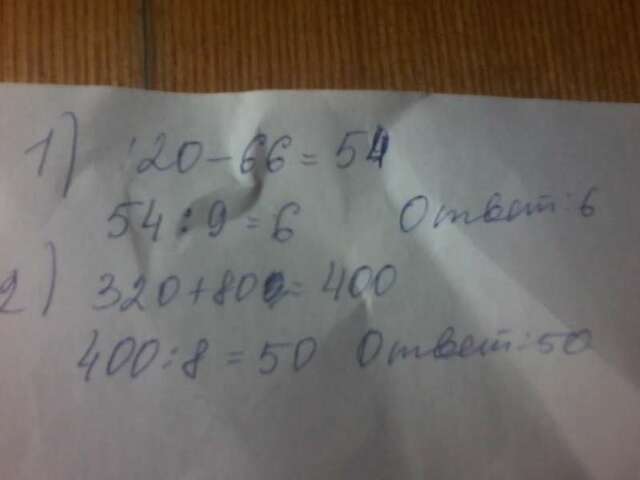 1) 120-66=54
54:9=6 Ответ:6
2) 320+80=400
400:8=50 Ответ:50